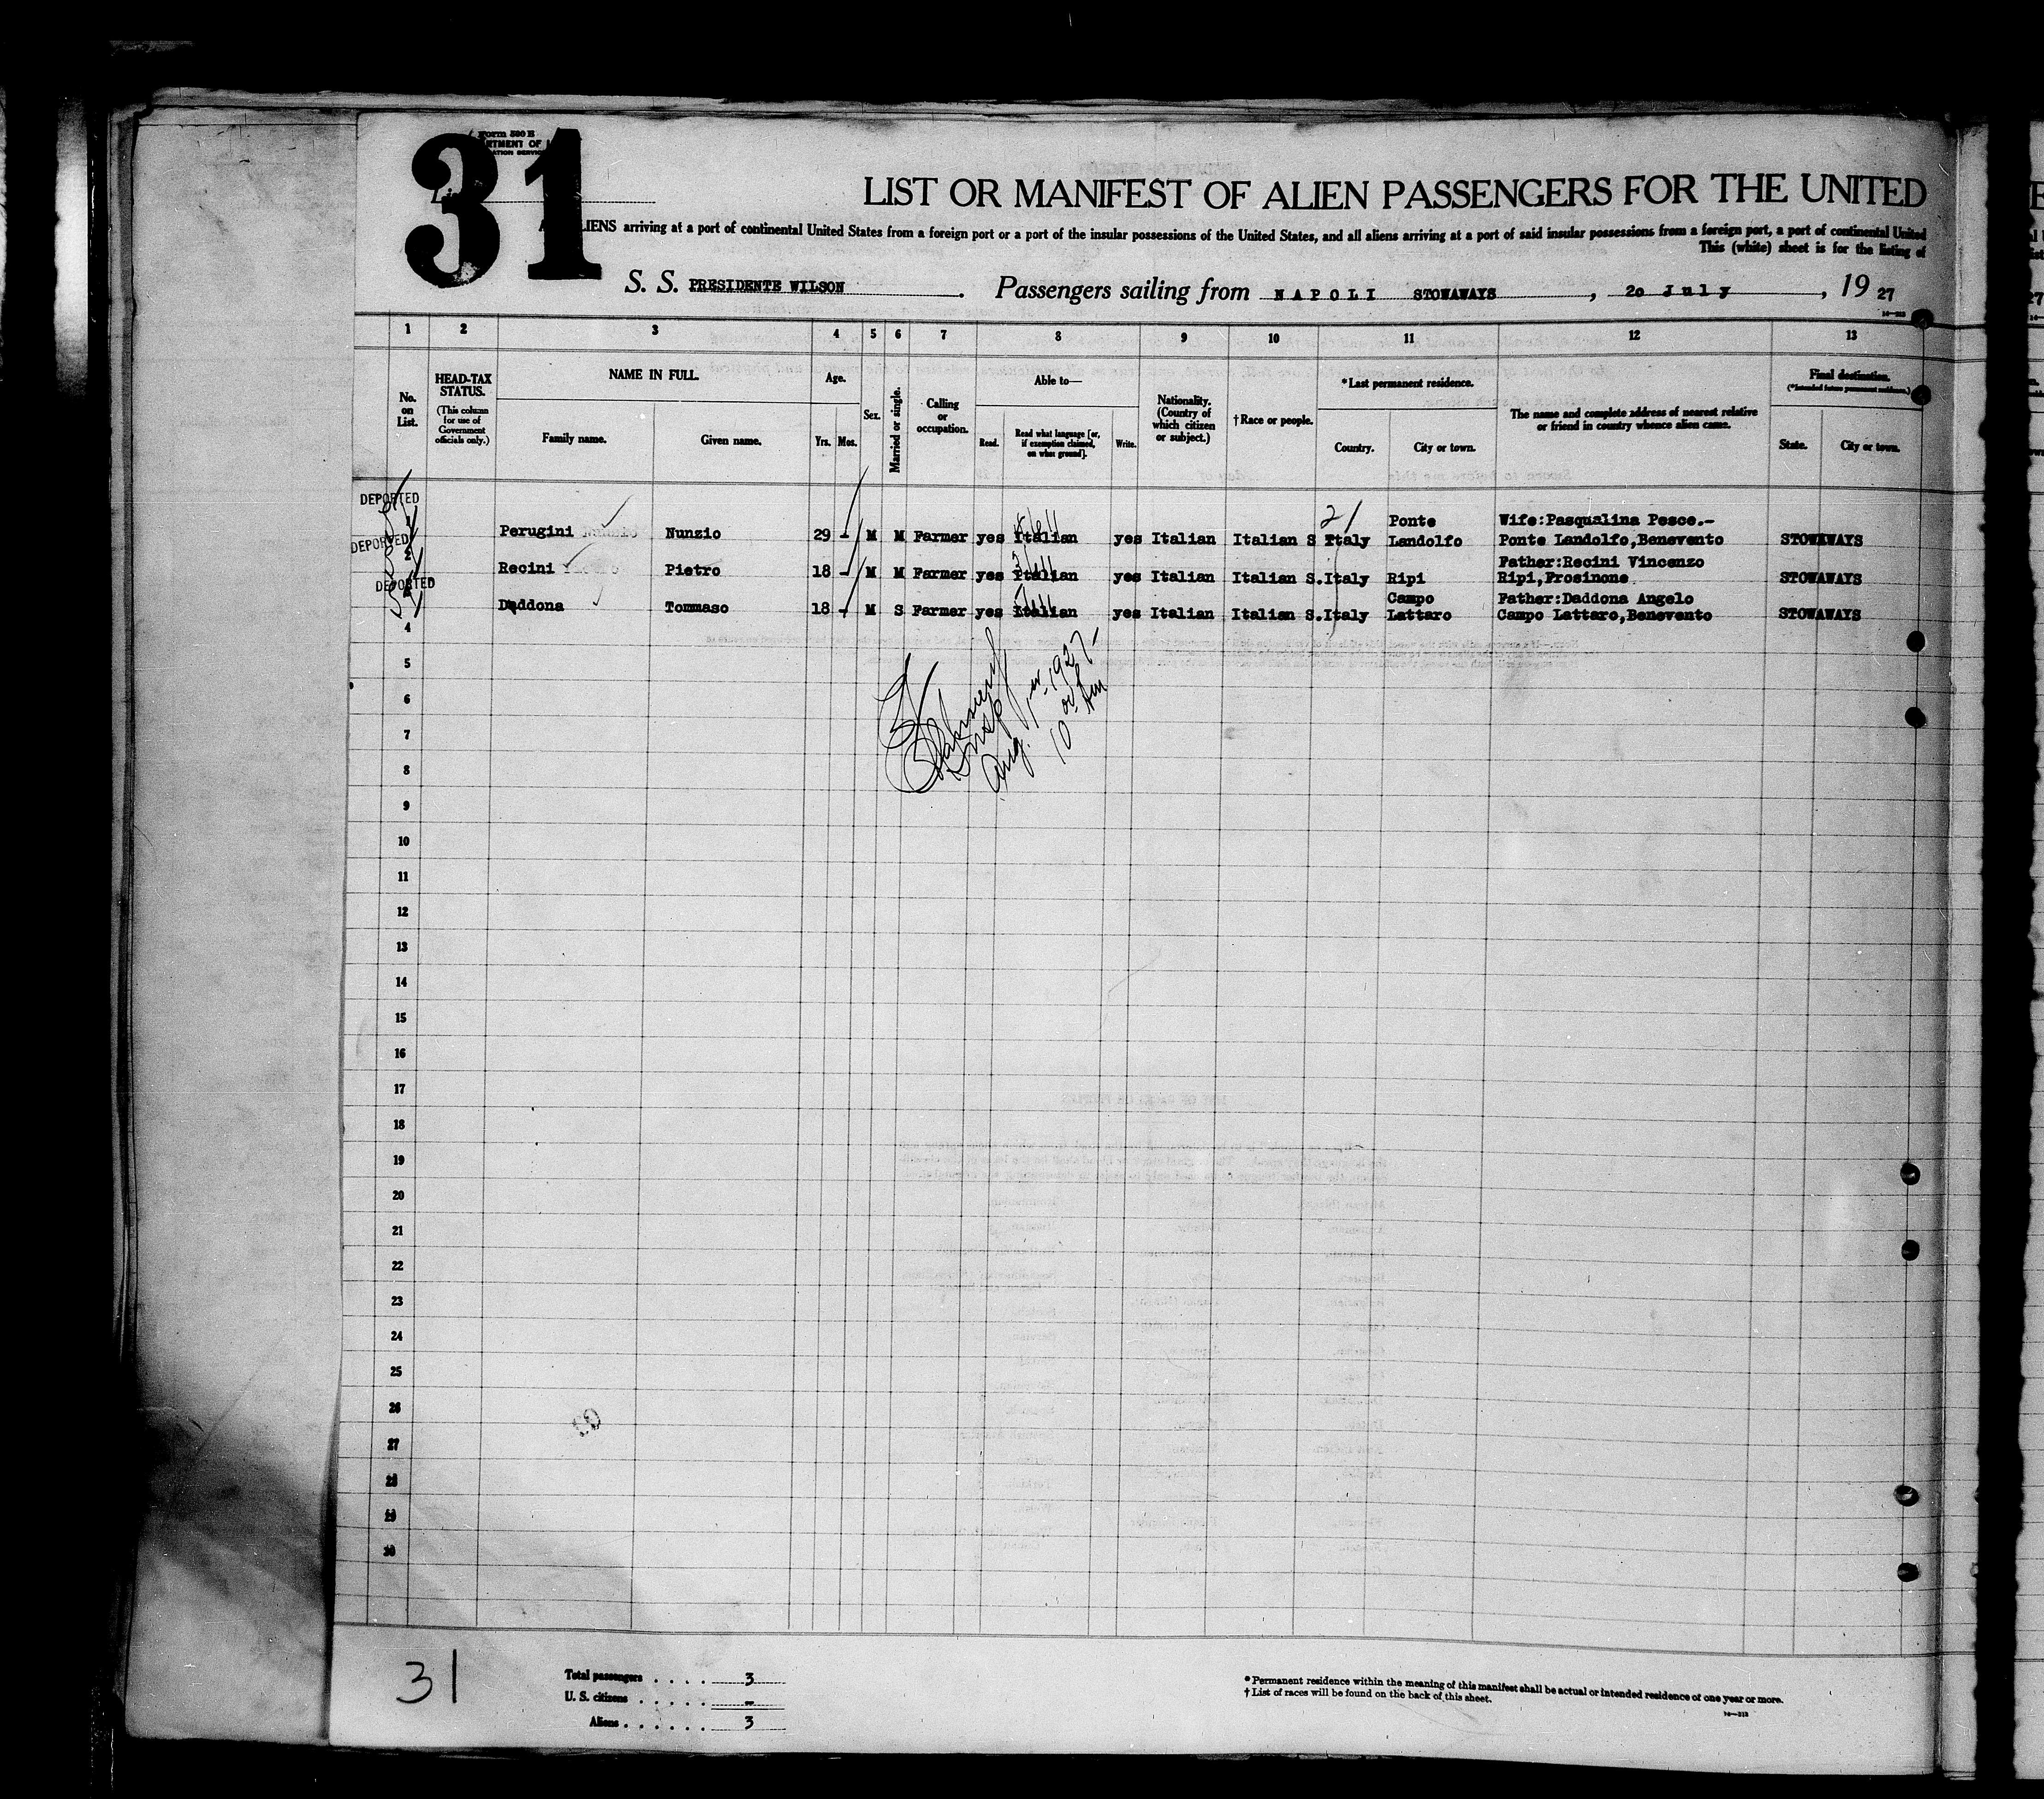 Form 500 B
31
LIST OR MANIFEST OF ALIEN PASSENGERS FOR THE UNITED
ALIENS arriving at a port of continental United States from a foreign port or a port of the insular possessions of the United States, and all aliens arriving at a port of said insular possessions from a foreign port, a port of continental United
This (white) sheet is for the listing of
S. S. PRESIDENTE WILSON. Passengers sailing from NAPOLI STOWAWAYS, 20 July, 19 27
1 2 3 4 5 6 7 8 9 10 11 12 13
No. on List.
HEAD-TAX STATUS.
(This column for use of Government officials only.)
NAME IN FULL.
Family name. Given name.
Age.
Yrs. Mos.
Sex.
Married or single.
Calling or occupation.
Able to—
Read. Read what language [or, if exemption claimed, on what ground]. Write.
Nationality. (Country of which citizen or subject.)
†Race or people.
*Last permanent residence.
Country. City or town.
The name and complete address of nearest relative or friend in country whence alien came.
Final destination.
(*Intended future permanent residence.)
State. City or town.
DEPORTED
21 Ponte Wife:Pasqualina Pesce.-
Perugini Nunzio 29 - M M Farmer yes Italian yes Italian Italian S Italy Landolfo Ponte Landolfo,Benevento STOWAWAYS
DEPORTED
Father:Recini Vincenzo
Recini Pietro 18 - M M Farmer yes Italian yes Italian Italian S.Italy Ripi Ripi,Frosinone STOWAWAYS
DEPORTED
Campo Father:Daddona Angelo
Daddona Tommaso 18 - M S Farmer yes Italian yes Italian Italian S.Italy Lattaro Campo Lattaro,Benevento STOWAWAYS
4
5
6
7
8
9
10
11
12
13
14
15
16
17
18
19
20
21
22
23
24
25
26
27
28
29
30
Insp
Aug. 1st 1927-
10 00 Am
31
Total passengers . . . . 3
U. S. citizens . . . . . -
Aliens . . . . . . 3
* Permanent residence within the meaning of this manifest shall be actual or intended residence of one year or more.
† List of races will be found on the back of this sheet.